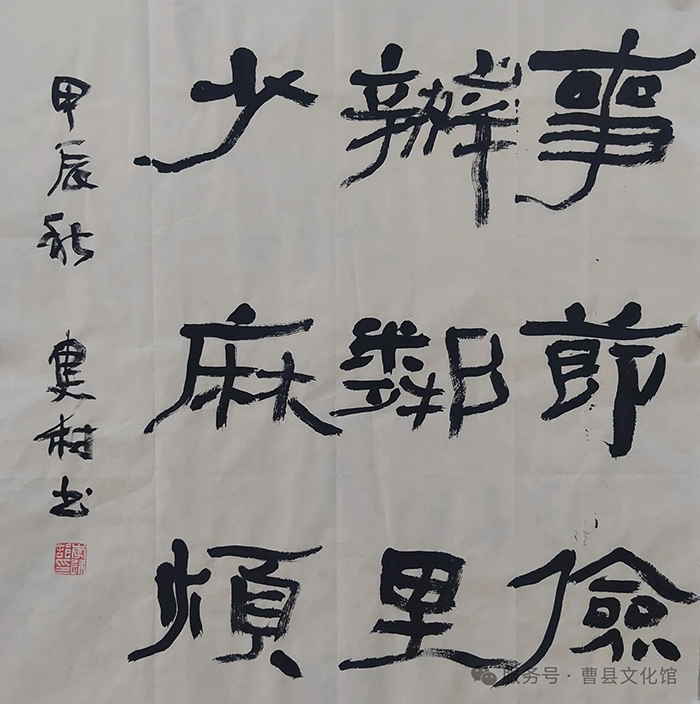 事節儉
辦鄰里
少麻煩
甲辰秋 村书
服务号·曹县文化馆